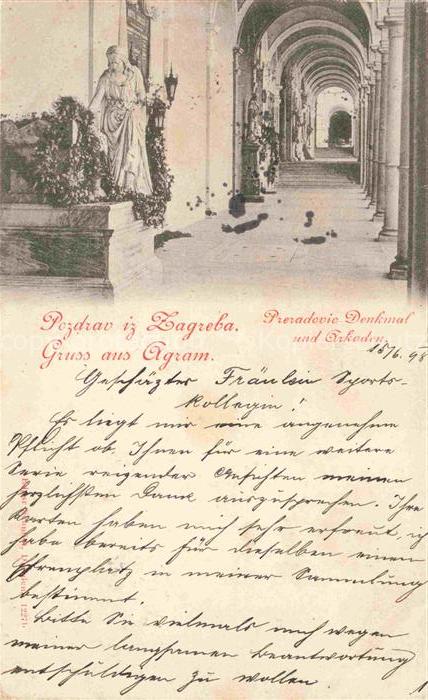 Pozdrav iz Zagreba.
Gruss aus Agram.
Preradovic-Denkmal
und Arkaden.
15/6. 98
Geschäzter Fräulein Sports-
kollegin!
Es liegt mir eine angenehme
Pflicht ob, Ihnen für eine weitere
Serie reizender Ansichten meinen
herzlichsten Dank auszusprechen. Ihre
Karten haben mich sehr erfreut, ich
habe bereits für dieselben einen
Ehrenplatz in meiner Sammlung
bestimmt.
Bitte Sie vielmals mich wegen
meiner langsamen Beantwortung
entschuldigen zu wollen